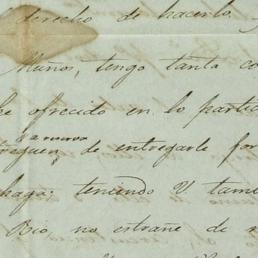 derecho de hacerlo.
Muños, tengo tanta co
he ofrecido en lo partic
a nuevo
treguen, de entregarle for
haga: teniendo V tam
Rio, no estrañe de n